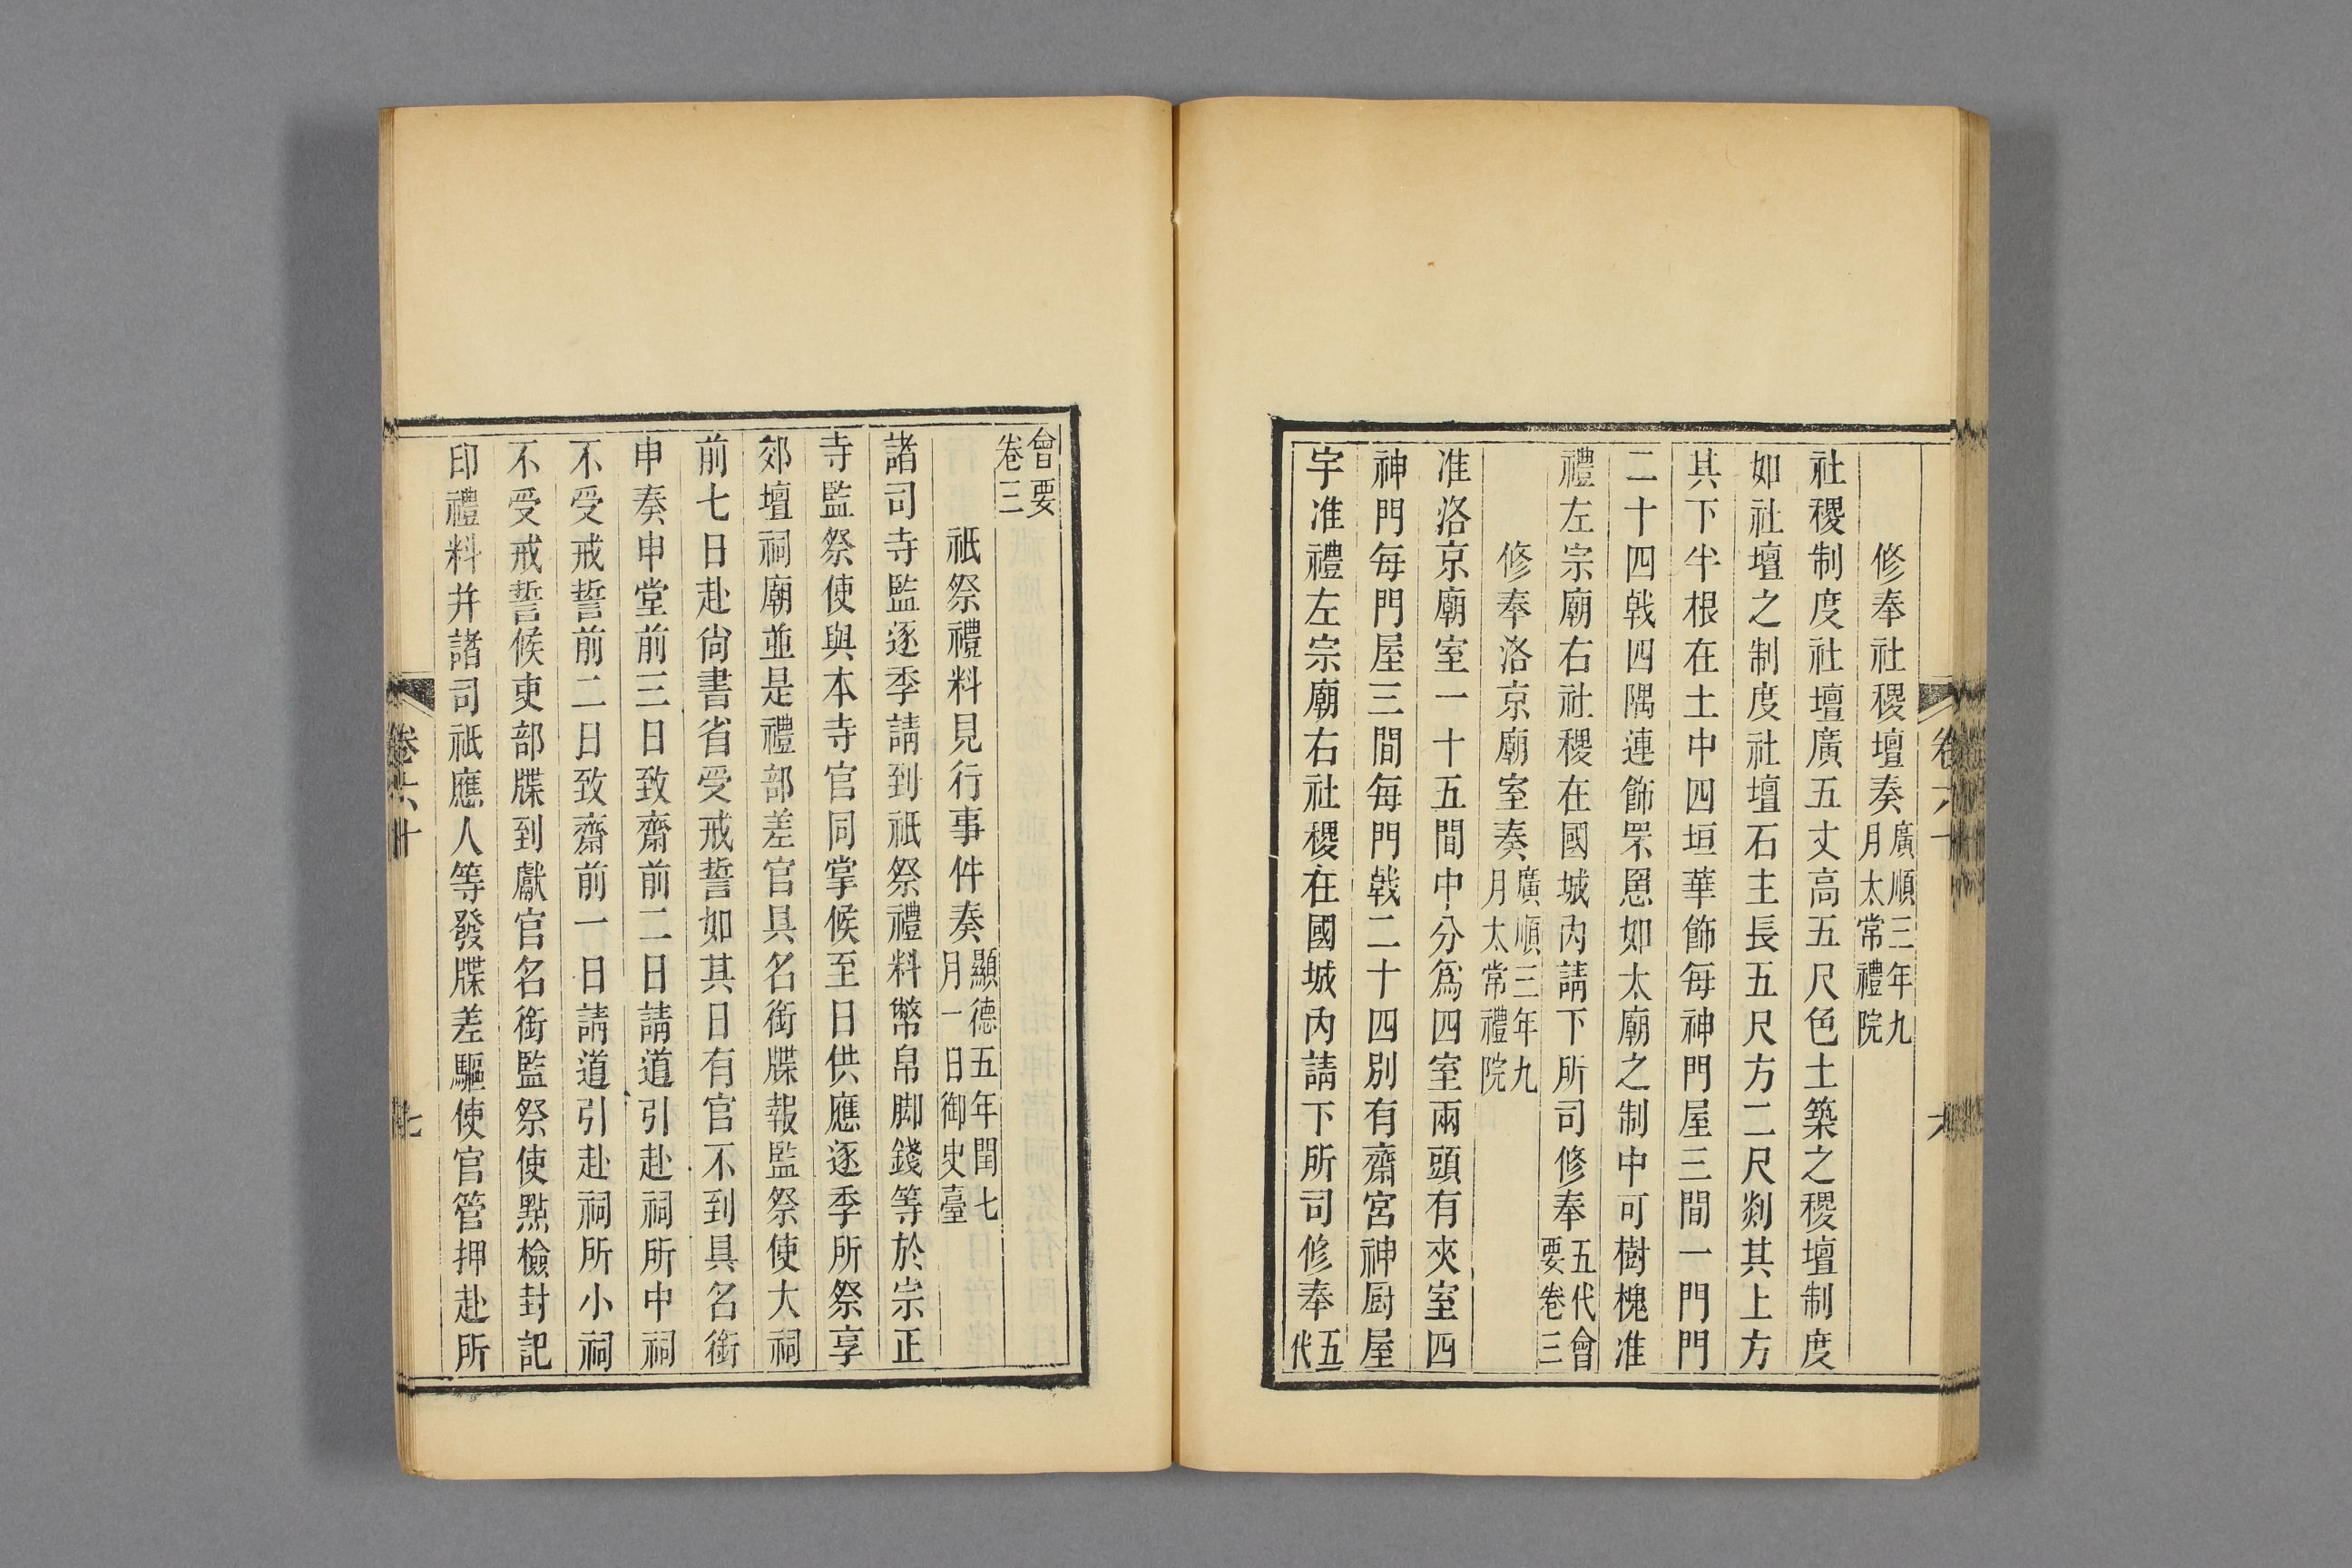 修奉社稷壇奏廣順三年九月太常禮院
社稷制度社壇廣五丈高五尺色土築之稷壇制度
如社壇之制度社壇石主長五尺方二尺剡其上方
其下半根在土中四垣華飾每神門屋三間一門門
二十四戟四隅連飾罘罳如太廟之制中可樹槐准
禮左宗廟右社稷在國城內請下所司修奉五代會要卷三
修奉洛京廟室奏廣順三年九月太常禮院
准洛京廟室一十五間中分爲四室兩頭有夾室四
神門每門屋三間每門戟二十四別有齋宮神厨屋
宇准禮左宗廟右社稷在國城內請下所司修奉五代
會要卷三
祇祭禮料見行事件奏顯德五年閏七月一日御史臺
諸司寺監逐季請到祇祭禮料幣帛脚錢等於宗正
寺監祭使與本寺官同掌候至日供應逐季所祭享
郊壇祠廟並是禮部差官具名銜牒報監祭使大祠
前七日赴尙書省受戒誓如其日有官不到具名銜
申奏申堂前三日致齋前二日請道引赴祠所中祠
不受戒誓前二日致齋前一日請道引赴祠所小祠
不受戒誓候吏部牒到獻官名銜監祭使點檢封記
印禮料幷諸司祇應人等發牒差驅使官管押赴所
卷六十
七